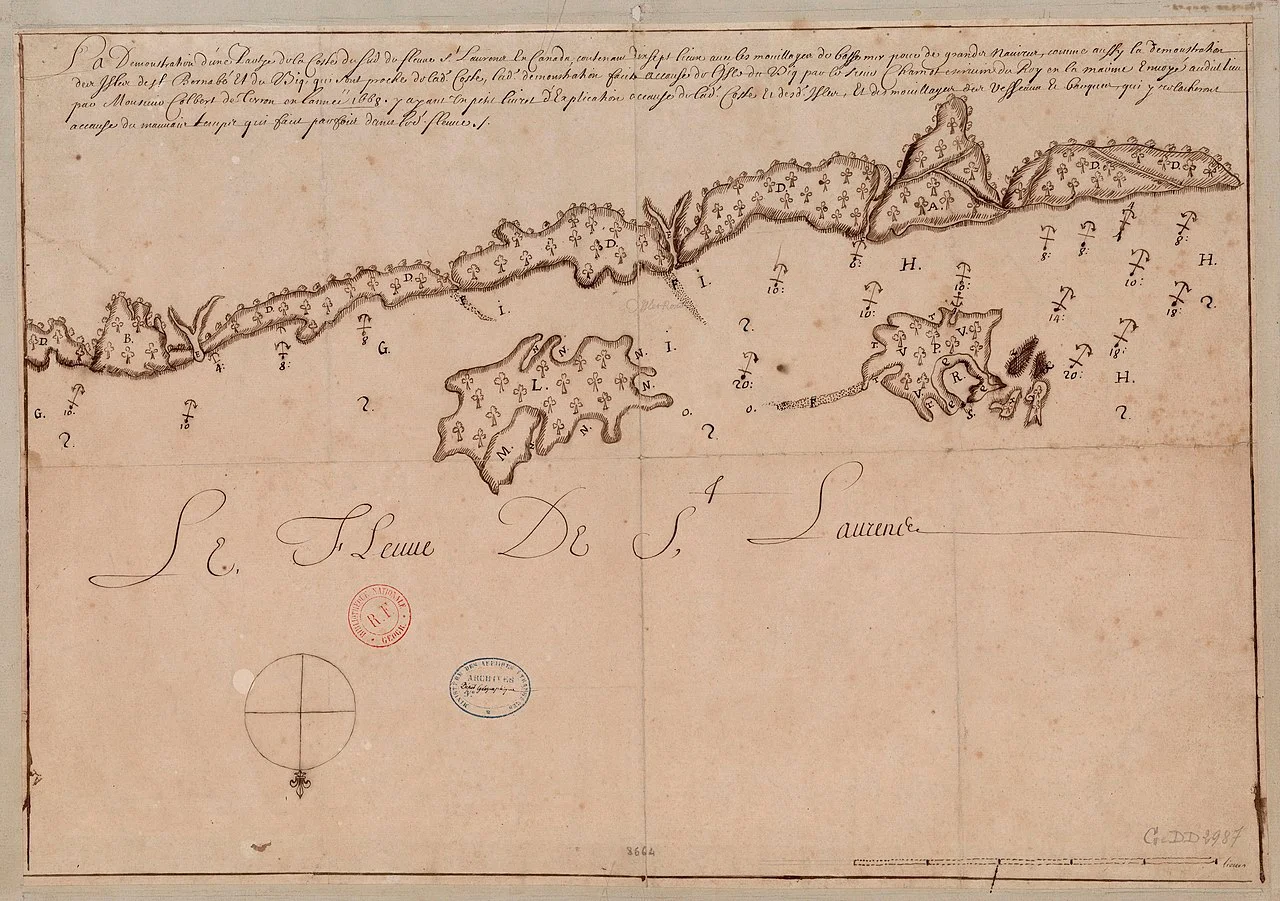 La Demonstration dúne Partye de la Coste du Sud du fleuve St. Laurens En Canada, contenant dixsept lieux avec les mouillages de basse mer pour de grandes Navires, comme aussy la demonstration
des Isles de St Bernabé Et du Biq qui sont proche de lad. Coste, lad. demonstration faite accause de Isle du Biq par le sieur escrivain du Roy en la marine Envoyé audit lieu
par Monsieur Colbert de Terron en l'année 1668. y ayant Un petit livret d'Explication accause de lad. Coste Et desd. Isles, Et des mouillages des Vesseaux Et barques, qui y relacheront
accause du mauvais temps qui fait parfois dans led. fleuve ./.
D. A. D. D.
D. D. D. D. B.
8: 8: 8: 6: H. H.
10: 10: 10: 10: 18: 14:
I. I. 2. 2.
8 G. 4: 8: 18: 20: 20: H.
G. 10: 10 2. 2. 2. 2.
L. M. N. N. N. N. N.
o. o. F
V. P. V. R. V. S.
Le, Fleuve De St Laurence
BIBLIOTHEQUE NATIONALE
R.F
GEOGR.
MINISTERE DES AFFAIRES ETRANGERES
ARCHIVES
Dépôt Géographique
N°
Ge DD 2987
8664
lieux